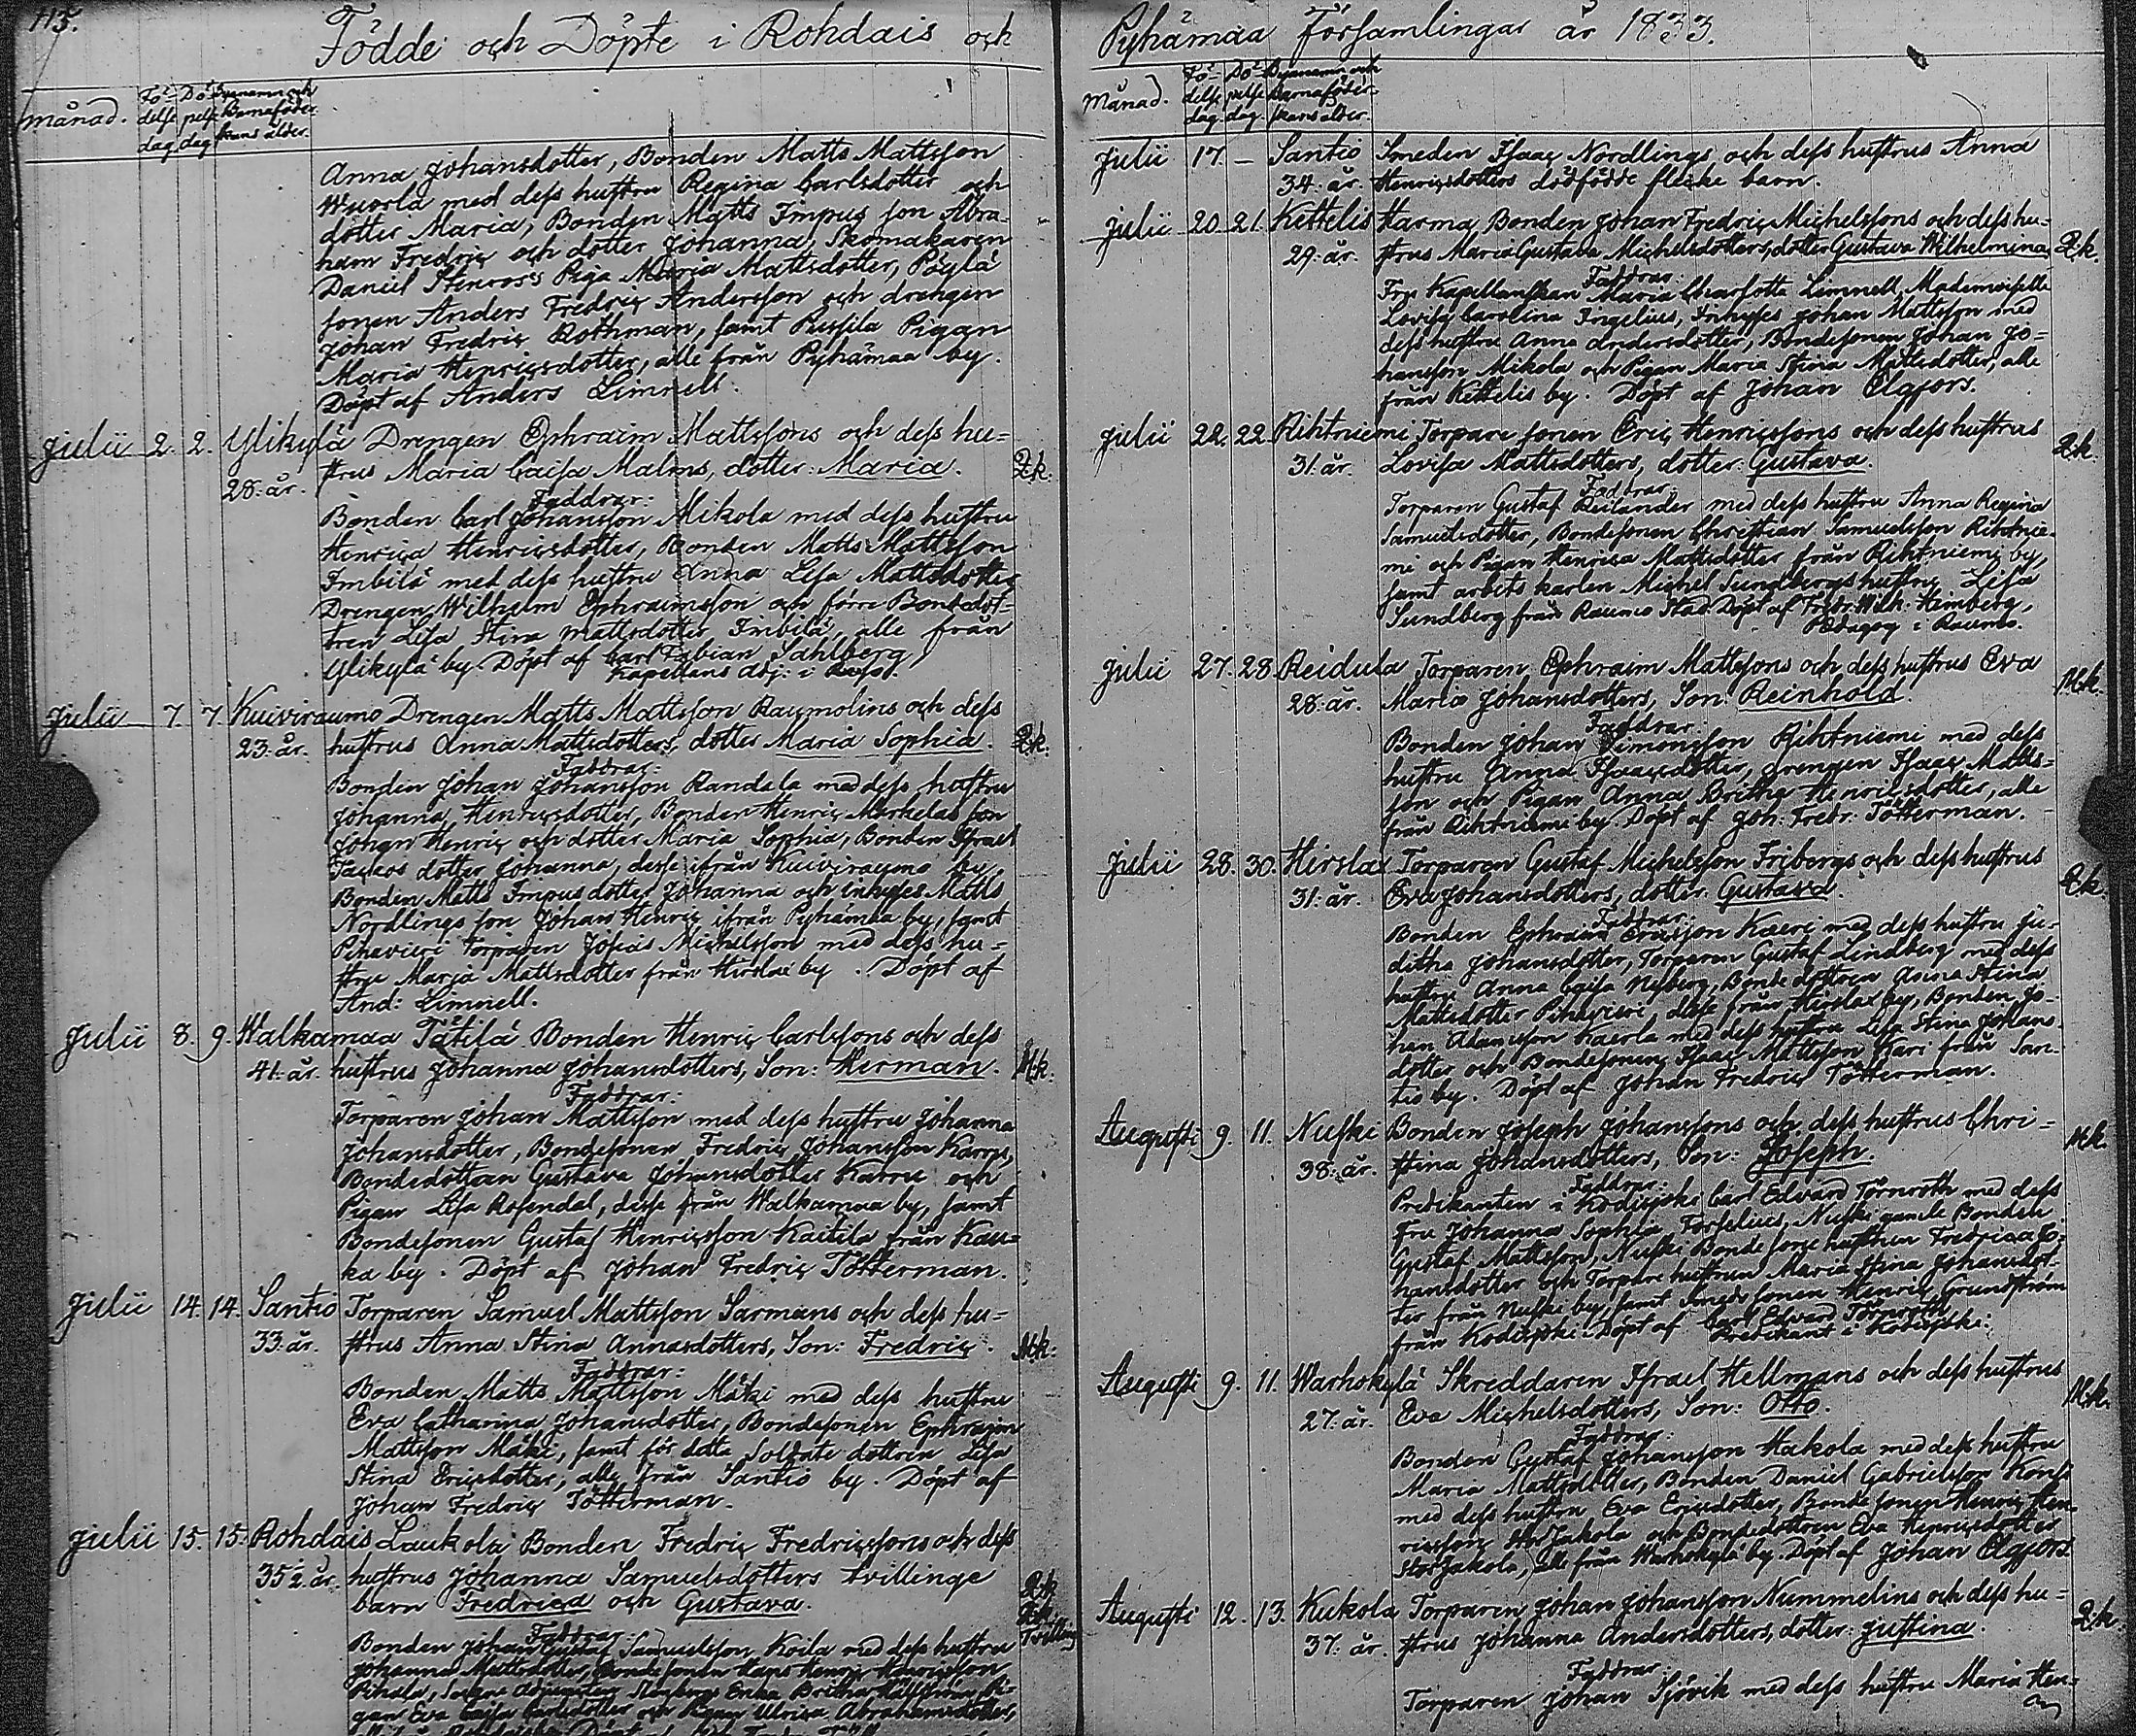 115.
Födde och Döpte i Rohdais och
månad. Fö- Dö- Bynamn och
delse pelse Barnaföder-
dag dag skans ålder.
Anna Johansdotter, Bonden Matts Mattsson
Wuorla med dess hustru Regina Carlsdotter och
dotter Maria, Bonden Matts Impus son Abra-
ham Fredric och dotter Johanna, Skomakaren
Daniel Stenros's Piga Maria Mattsdotter, Pöylä
sonen Anders Fredric Andersson och drengen
Johan Fredric Rothman, samt Pussila Pigan
Maria Henricsdotter, alle från Pyhämaa by.
Döpt af Anders Limnell.
Julii 2. 2. Ylikylä Drengen Ephraim Mattssons och dess hu-
28. år. strus Maria Caisa Malms, dotter: Maria. Q.k.
Faddrar:
Bonden Carl Johansson Mikola med dess hustru
Henrica Henricsdotter, Bonden Matts Mattsson
Imbilä med dess hustru Anna Lisa Mattsdotter
Drengen Wilhelm Ephraimsson och förre Bondedot-
tren Lisa Stina Mattsdotter Imbilä, alle från
Ylikylä by. Döpt af Carl Fabian Sahlberg,
Kapellans Adj: i
Julii 7. 7. Kuiviraumo Drengen Matts Mattsson Raumolins och dess
23. år. hustrus Anna Mattsdotters, dotter Maria Sophia. Q.k.
Faddrar:
Bonden Johan Johansson Randala med dess hustru
Johanna Henricsdotter, Bonden Henric Markelas son
Johan Henric och dotter Maria Sophia, Bonden Israel
dotter Johanna, desse ifrån Kuiviraumo by,
Bonden Matts Impus dotter Johanna och inhyses Matts
Nordlings son Johan Henric ifrån Pyhämaa by, samt
Pihavieri Torparen Josias Michelsson med dess hu-
stru Maria Mattsdotter från Hirslax by. Döpt af
And: Limnell.
Julii 8. 9. Walkamaa Tätilä Bonden Henric Carlssons och dess
41. år. hustrus Johanna Johansdotters, Son: Herman. M.k.
Faddrar:
Torparen Johan Mattsson med dess hustru Johanna
Johansdotter, Bondesonen Fredric Johansson Karru,
Bondedottran Gustava Johansdotter Karru och
Pigan Lisa Rosendal, desse från Walkamaa by, samt
Bondesonen Gustaf Henricsson Kaitila från Kau-
ka by. Döpt af Johan Fredric Tötterman.
Julii 14. 14. Santio Torparen Samuel Mattsson Sarmans och dess hu-
33. år. strus Anna Stina Annasdotters, Son: Fredric. M.k.
Faddrar:
Bonden Matts Mattsson Mäki med dess hustru
Eva Catharina Johansdotter, Bondesonen Ephraim
Mattsson Mäki, samt för detta Soldats dottren Lisa
Stina Ericsdotter, alle från Santio by. Döpt af
Johan Fredric Tötterman.
Julii 15. 15. Rohdais Laukola Bonden Fredric Fredricssons och dess
35½. år. hustrus Johanna Samuelsdotters tvillinge Q.k.
barn Fredrica och Gustava. Q.k. Tvilling
Faddrar:
Bonden Johan Gustaf Samuelsson Koila med dess hustru
Johanna Mattsdotter, Bondesonen Hans Henric Henricsson
Pihala, Erica Britha Hällström, Pi-
gan Eva Caisa Carlsdotter och Pigan Ulrica Abrahamsdotter,
Pyhämaa Församlingar år 1833.
Månad. Fö- Dö- Bynamn och
delse pelse Barnaföder-
dag. dag. skans ålder.
Julii 17. – Santio Smeden Isaac Nordlings och dess hustrus Anna
34. år. Henricsdotters dödfödde flicke barn.
Julii 20. 21. Kettelis Harma Bonden Johan Fredric Michelssons och dess hu-
29. år. strus Maria Gustava Michelsdotters, dotter Gustava Wilhelmina. Q.k.
Faddrar:
Fru Kapellanskan Maria Charlotta Limnell, Mademoiselle
Lovisa Carolina Ingelius, Inhyses Johan Mattsson med
dess hustru Anna Andersdotter, Bondesonen Johan Jo-
hansson Mikola och Pigan Maria Stina Mattsdotter, alle
från Kettelis by. Döpt af Johan Elgfors.
Julii 22. 22. Rihtniemi Torpare sonen Eric Henricssons och dess hustrus
31. år. Lovisa Mattsdotters, dotter: Gustava. Q.k.
Faddrar:
Torparen Gustaf Reilander med dess hustru Anna Regina
Samuelsdotter, Bondesonen Christian Samuelsson Rihtnie-
mi och Pigan Henrica Mattsdotter från Rihtniemi by,
samt arbets karlen Michel Sundbergs hustru Lisa
Sundberg från Raumo Stad. Döpt af Fredr: Wilh: Heimberg,
Pædagog i Raumo.
Julii 27. 28. Reidula Torparen Ephraim Mattssons och dess hustrus Eva
28. år. Maria Johansdotters, Son: Reinhold. M.k.
Faddrar:
Bonden Johan Simonsson Rihtniemi med dess
hustru Anna Isaacsdotter, drengen Isaac Matts-
son och Pigan Anna Britha Henricsdotter, alle
från Rihtniemi by. Döpt af Joh: Fredr: Tötterman.
Julii 28. 30. Hirslax Torparen Gustaf Michelsson Fribergs och dess hustrus
31. år. Eva Johansdotters, dotter: Gustava. Q.k.
Faddrar:
Bonden Ephraim Ericsson Kaeri med dess hustru Ju-
ditha Johansdotter, Torparen Gustaf Lindberg med dess
hustru Anna Caisa Nyberg, Bonde dottren Stina
Mattsdotter Pihavieri, desse från Hirslax by, Bonden Jo-
han Adamsson Kaerla med dess hustru Lisa Stina Johans-
dotter och Bondesonen Isaac Mattsson Kari från San-
tio by. Döpt af Johan Fredric Tötterman.
Augusti 9. 11. Nuski Bonden Joseph Johanssons och dess hustrus Chri-
38. år. stina Johansdotters, Son: Joseph. M.k.
Faddrar:
Predikanten i Kodisjoki Carl Edvard Törnroth med dess
Fru Johanna Sophia Forselius, Nuski gamle Bonden
Gustaf Mattsson, Nuski Bonde sons hustrun Fredrica Jo-
hansdotter och Torpare hustrun Maria Stina Johansdot-
ter från Nuski by, samt sonen Henric Grundström
från Kodisjoki. Döpt af Carl Edvard Törnroth
Predikant i Kodisjoki.
Augusti 9. 11. Warhokylä Skreddaren Israel Hellmans och dess hustrus
27. år. Eva Michelsdotters, Son: Otto. M.k.
Faddrar:
Bonden Gustaf Johansson Hakola med dess hustru
Maria Mattsdotter, Bonden Daniel Gabrielsson Konsi
med dess hustru Eva Ericsdotter, Bonde sonen Henric Hen-
ricsson StorJakola och Bondedottren Eva Henricsdotter
StorJakola, alle från Warhokylä by. Döpt af Johan Elgfors
Augusti 12. 13. Kukola Torparen Johan Johansson Nummelins och dess hu-
37. år. strus Johanna Andersdotters, dotter: Justina. Q.k.
Faddrar:
Torparen Johan Sjövik med dess hustru Maria Hen-